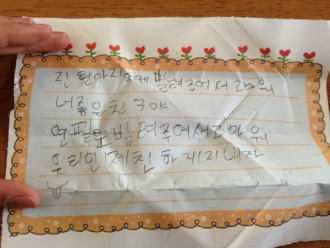 빌려주어서 고마워
너좋은친구야
연필을 빌려주어서고마워
우리언제친하게지내자